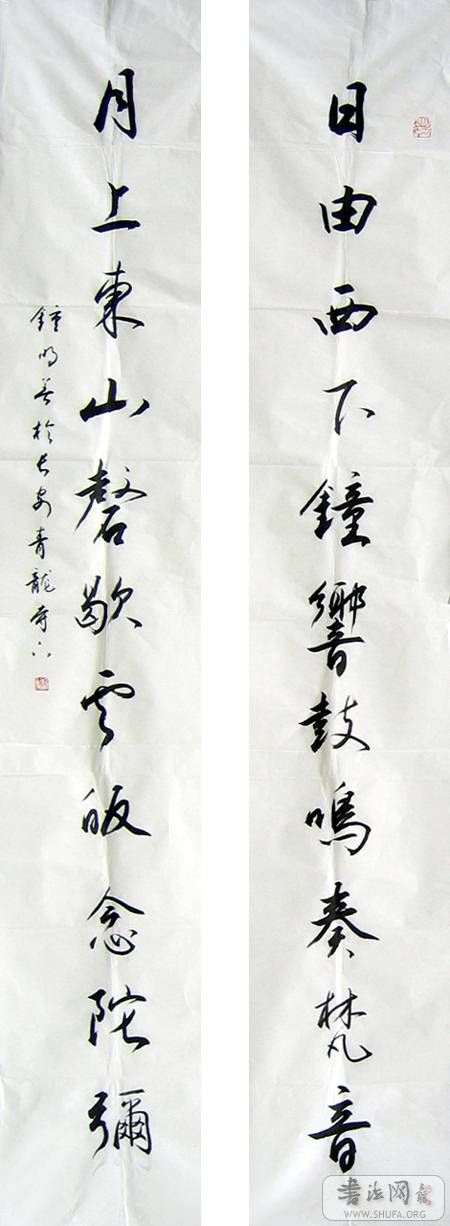 日由西下鐘響鼓鳴奏梵音
月上東山磬歇云皈念陀彌
鍾明善於長安青龍寺下
書法网
WWW.SHUFA.ORG